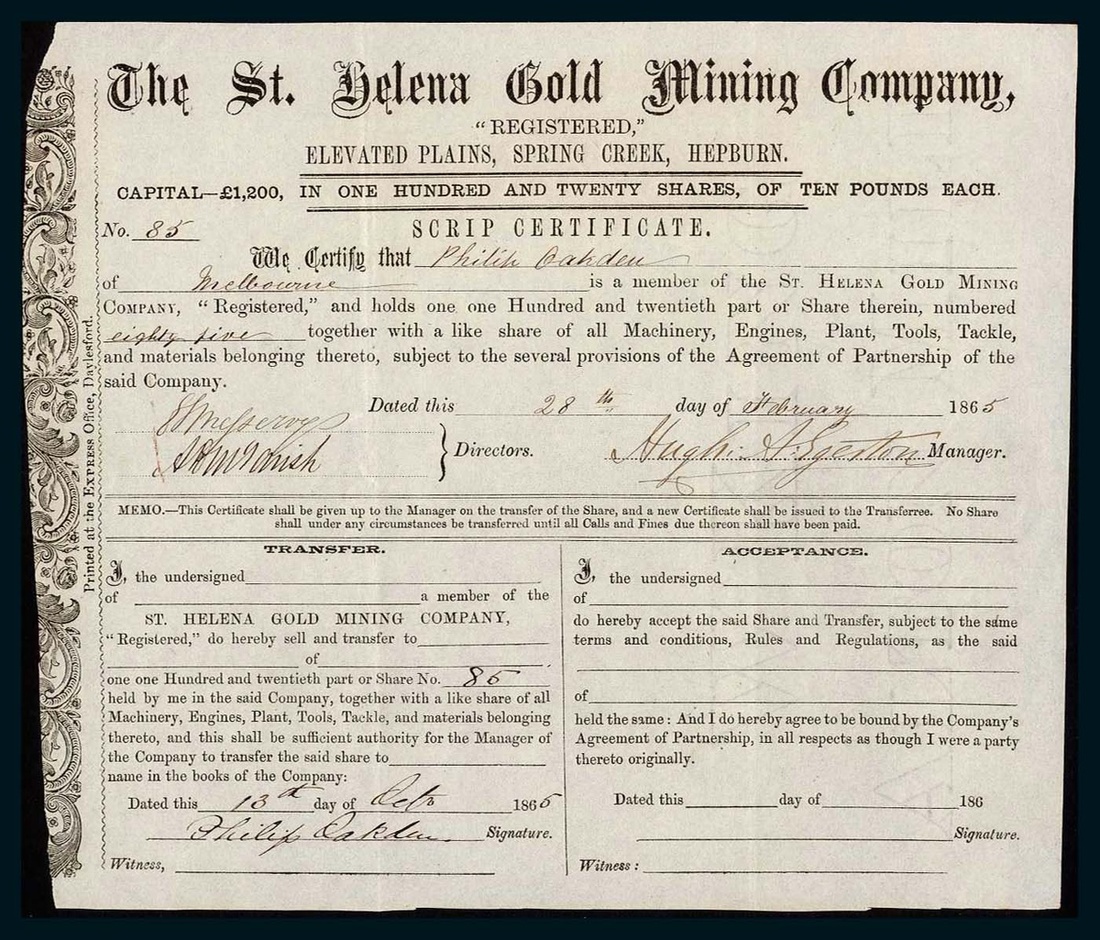 The St. Helena Gold Mining Company,
"REGISTERED,"
ELEVATED PLAINS, SPRING CREEK, HEPBURN.
CAPITAL—£1,200, IN ONE HUNDRED AND TWENTY SHARES, OF TEN POUNDS EACH.
No. 85 SCRIP CERTIFICATE.
We Certify that Philip Oakden
of Melbourne is a member of the ST. HELENA GOLD MINING
COMPANY, "Registered," and holds one one Hundred and twentieth part or Share therein, numbered
eighty five together with a like share of all Machinery, Engines, Plant, Tools, Tackle,
and materials belonging thereto, subject to the several provisions of the Agreement of Partnership of the
said Company.
Dated this 28th day of February 1865
Directors. Hugh Egerton Manager.
MEMO.—This Certificate shall be given up to the Manager on the transfer of the Share, and a new Certificate shall be issued to the Transferree. No Share
shall under any circumstances be transferred until all Calls and Fines due thereon shall have been paid.
TRANSFER.
I, the undersigned
of a member of the
ST. HELENA GOLD MINING COMPANY,
"Registered," do hereby sell and transfer to
of
one one Hundred and twentieth part or Share No. 85
held by me in the said Company, together with a like share of all
Machinery, Engines, Plant, Tools, Tackle, and materials belonging
thereto, and this shall be sufficient authority for the Manager of
the Company to transfer the said share to
name in the books of the Company:
Dated this 13th day of Octr 1865
Philip Oakden Signature.
Witness,
ACCEPTANCE.
I, the undersigned
of
do hereby accept the said Share and Transfer, subject to the same
terms and conditions, Rules and Regulations, as the said
of
held the same: And I do hereby agree to be bound by the Company's
Agreement of Partnership, in all respects as though I were a party
thereto originally.
Dated this day of 186
Signature.
Witness:
Printed at the EXPRESS OFFICE, Daylesford.